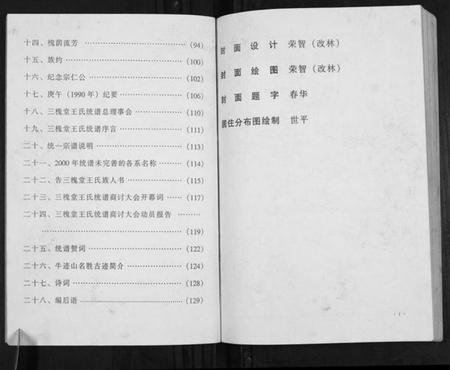 十四、槐荫流芳 ……………………(94)
十五、族约 ……………………(100)
十六、纪念宗仁公 ……………………(102)
十七、庚午（1990年）纪要 ……………………(106)
十八、三槐堂王氏统谱总理事会 ……………………(110)
十九、三槐堂王氏统谱序言 ……………………(111)
二十、统一宗谱说明 ……………………(113)
二十一、2000年统谱未完善的各系名称 ……………………(114)
二十二、告三槐堂王氏族人书 ……………………(115)
二十三、三槐堂王氏统谱商讨大会开幕词 ……(117)
二十四、三槐堂王氏统谱商讨大会动员报告 ………
……………………(119)
二十五、统谱赞词 ……………………(122)
二十六、牛迹山名胜古迹简介 ……………………(124)
二十七、诗词 ……………………(128)
二十八、编后语 ……………………(129)
封面设计 荣智（改林）
封面绘图 荣智（改林）
封面题字 春华
居住分布图绘制 世平
· 1 ·